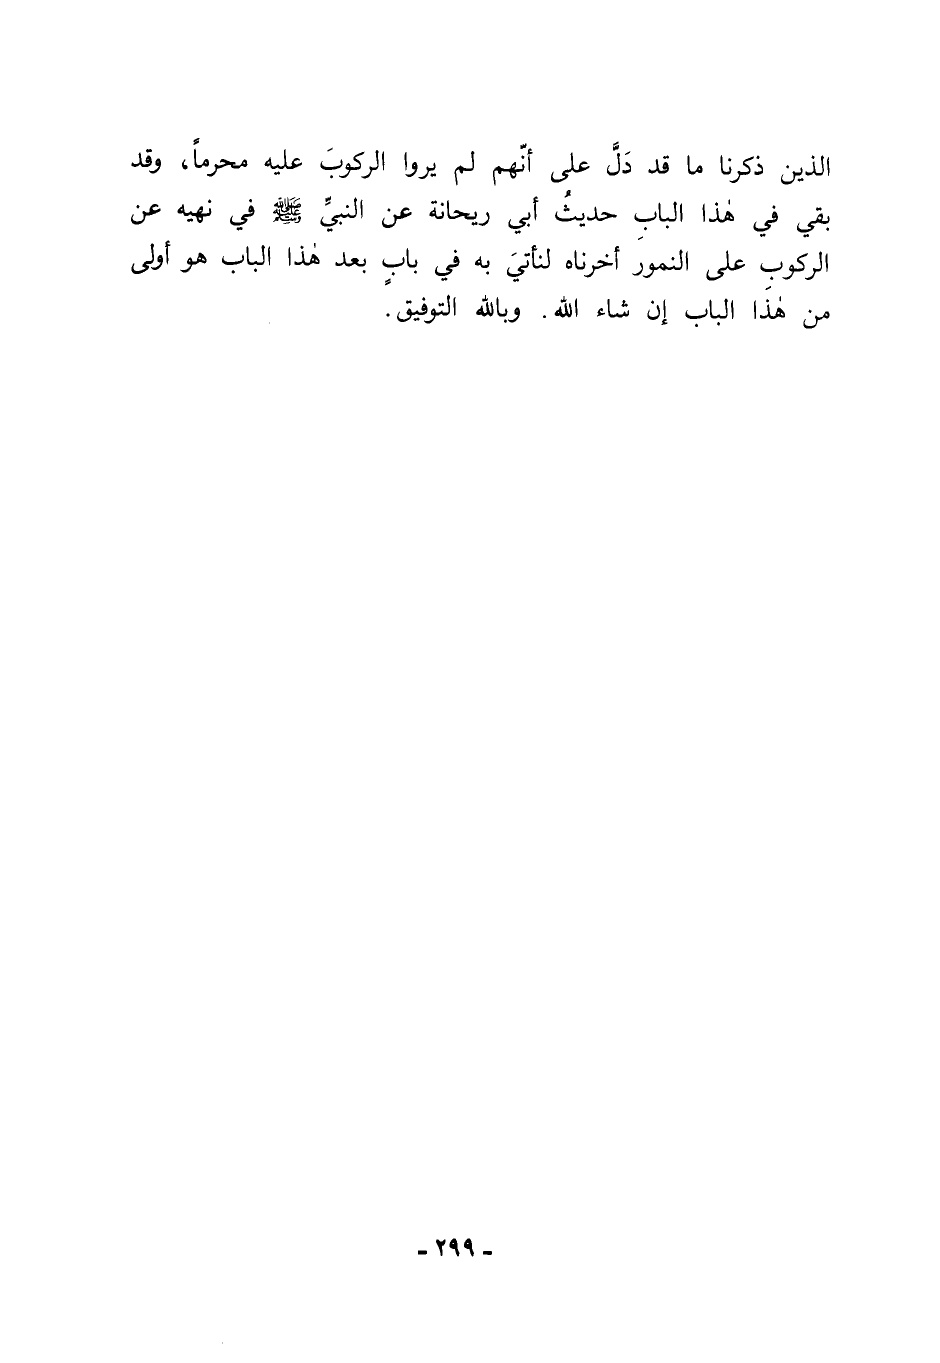 الذين ذكرنا ما قد دَلَّ على أنّهم لم يروا الركوبَ عليه محرماً، وقد
بقي في هٰذا البابِ حديثُ أبي ريحانة عن النبيِّ ﷺ في نهيه عن
الركوبِ على النمور أخرناه لنأتيَ به في بابٍ بعد هٰذا الباب هو أولى
من هٰذا الباب إن شاء الله. وبالله التوفيق.
- ٢٩٩ -